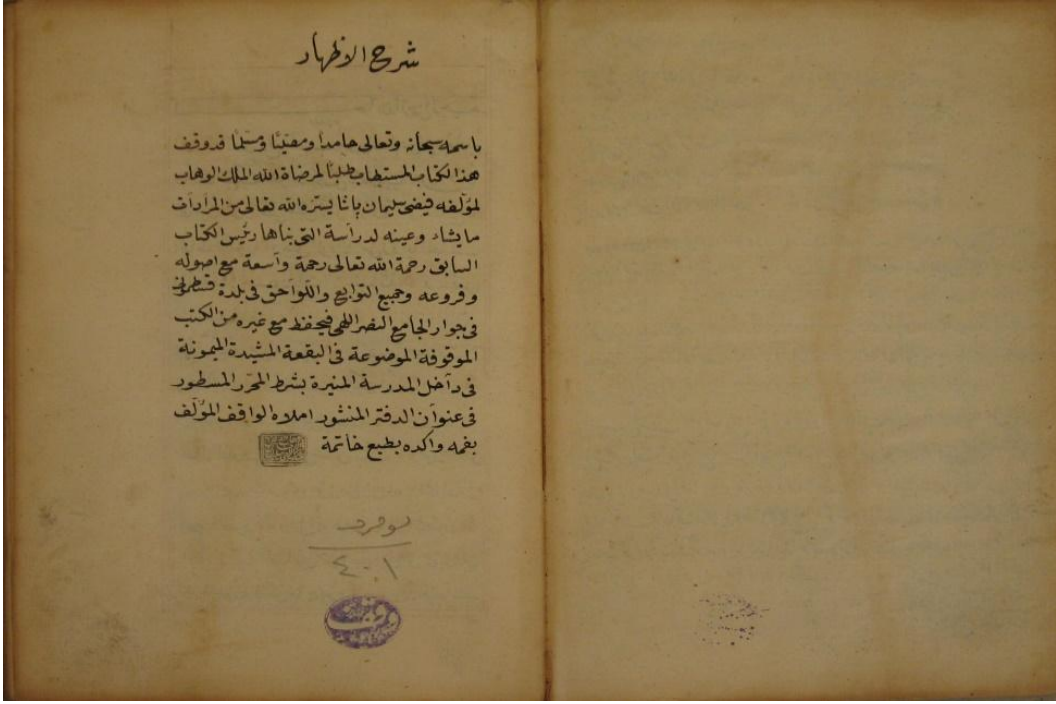 شرح الاظهار
باسمه سبحانه وتعالى حامداً ومصلّيًا ومسلّما قد وقف
هذا الكتاب المستطاب طلبًا لمرضاة الله الملك الوهاب
لمؤلفه فيضى سليمان پاشا يسّره الله تعالى من المرادات
ما يشاء وعينه لدراسة التى بناها رئيس الكتاب
السابق رحمة الله تعالى رحمة واسعة مع اصوله
و فروعه وجميع التوابع واللواحق فى بلدة قسطمونى
فى جوار الجامع النصر اللهى فيحفظ مع غيره من الكتب
الموقوفة الموضوعة فى البقعة المشيدة الميمونة
فى داخل المدرسة المنيرة بشرط المحرّر المسطور
فى عنوان الدفتر المنشور املاه الواقف المؤلف
بفمه واكده بطبع خاتمة
نومرو
٤٠١